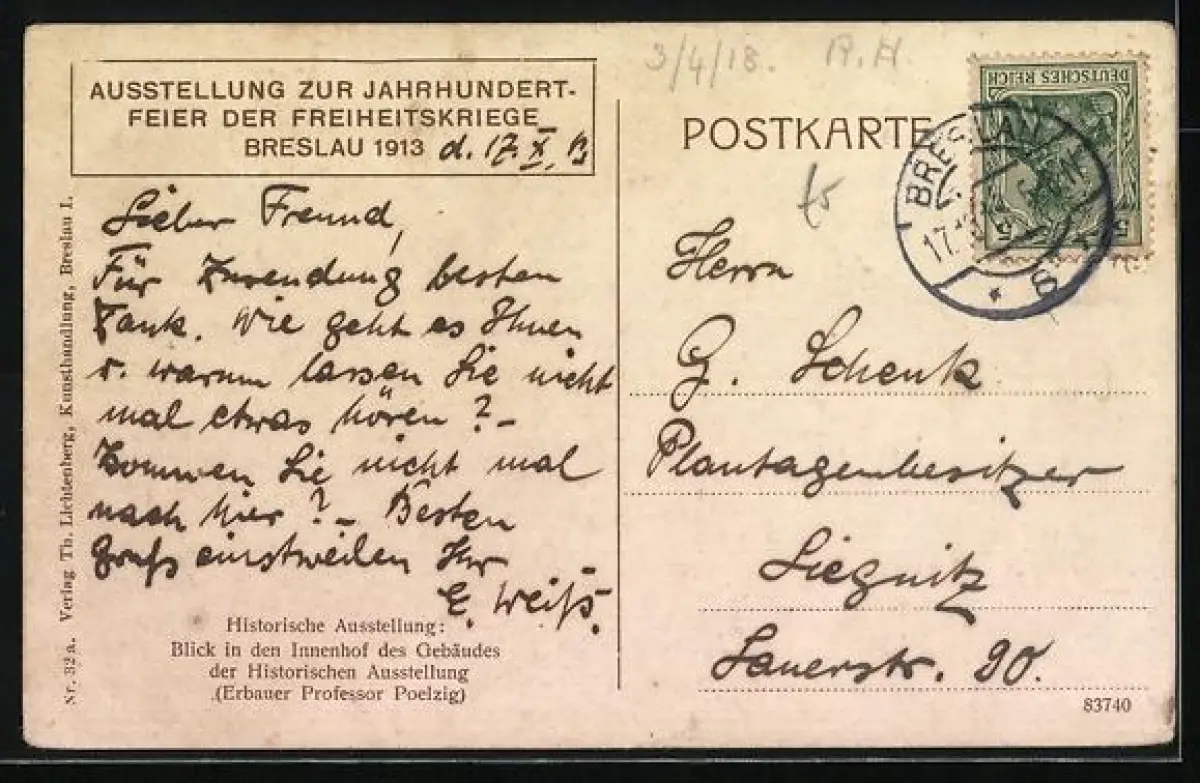 AUSSTELLUNG ZUR JAHRHUNDERT-
FEIER DER FREIHEITSKRIEGE
BRESLAU 1913 d. 17. X. 13
Lieber Freund,
Für Zusendung besten
Dank. Wie geht es Ihnen
u. warum lassen Sie nicht
mal etwas hören? -
Kommen Sie nicht mal
nach hier? - Besten
Gruß einstweilen Ihr
E. Weiß.
Historische Ausstellung:
Blick in den Innenhof des Gebäudes
der Historischen Ausstellung
(Erbauer Professor Poelzig)
Nr. 32 a. Verlag Th. Lichtenberg, Kunsthandlung, Breslau I.
3/4/18. R.H.
POSTKARTE
DEUTSCHES REICH
5 5
BRESLAU
17.
Herrn
G. Schenk
Plantagenbesitzer
Liegnitz
Jauerstr. 90.
83740